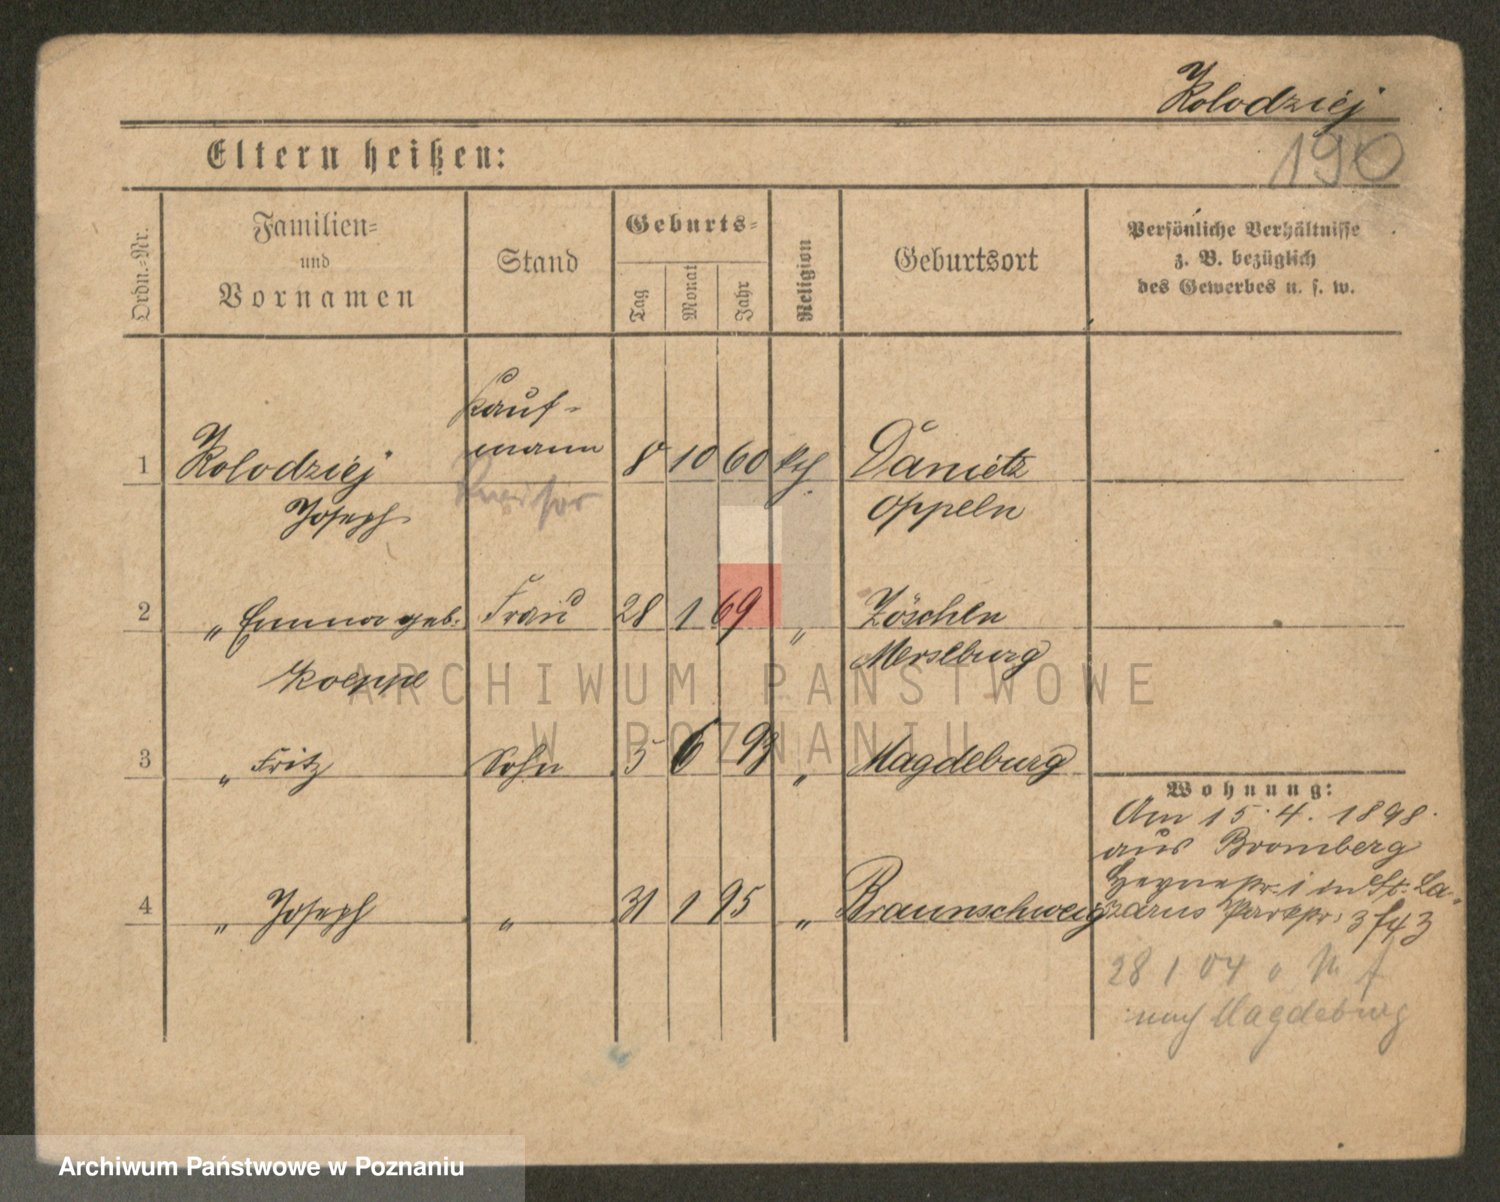 Kolodziej
190
Eltern heißen:
Ordn.-Nr.
Familien-
und
Vornamen
Stand
Geburts-
Tag
Monat
Jahr
Religion
Geburtsort
Persönliche Verhältnisse
z. B. bezüglich
des Gewerbes u. s. w.
Kauf-
mann
1 Kolodziej 8 10 60 kth Danietz
Joseph Oppeln
2 " Emma geb. Frau 28 1 69 " Zöschen
Koeppe Merseburg
3 " Fritz Sohn 5 6 93 " Magdeburg
Wohnung:
Am 15.4.1898.
aus Bromberg
in St. La-
4 " Joseph " 31 1 95 " Braunschweig
zarus Parkstr. 3
28 1 04
nach Magdeburg
ARCHIWUM PAŃSTWOWE
W POZNANIU
Archiwum Państwowe w Poznaniu